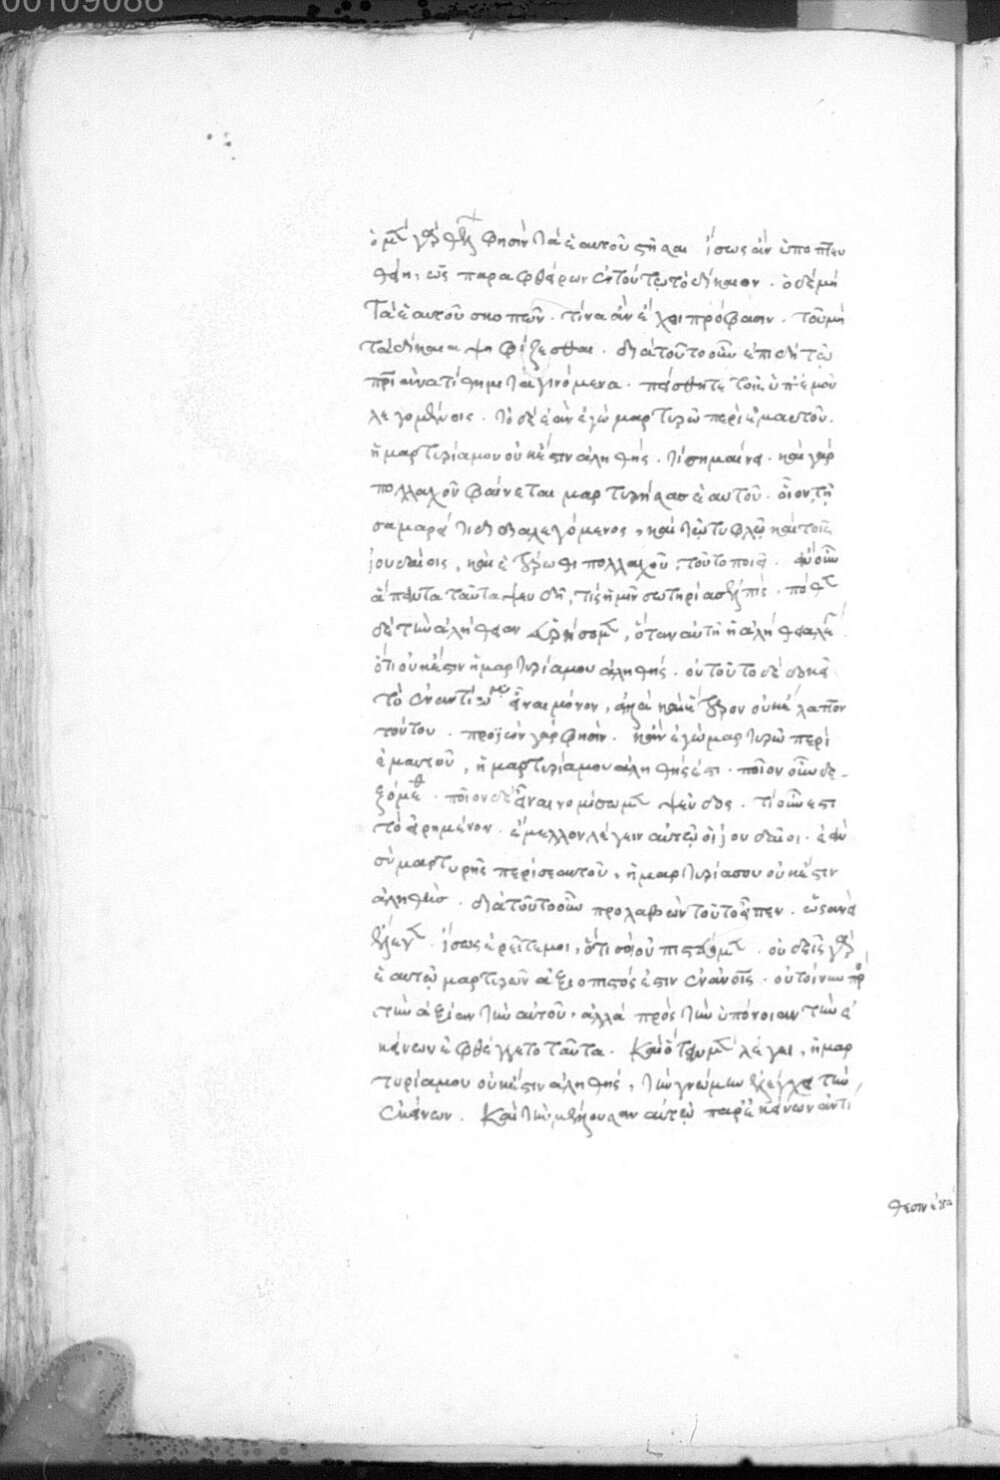 00109086
ὁ μὲν γὰρ θέλων φησὶν τὰ ἑαυτοῦ στῆσαι ἴσως ἂν ὑποπτευ
θείη, ὡς παραφθείρων ἐν τούτω τὸ δίκαιον. ὁ δὲ μὴ
τὰ ἑαυτοῦ σκοπῶν. τίνα ἂν ἔχοι πρόφασιν. τοῦ μὴ
τὰ δίκαια ψηφίζεσθαι. διὰ τοῦτο οὖν ἐπειδὴ τῶ
πρὶ ἀνατίθημι τὰ γινόμενα. πείσθητε τοῖς ὑπ' ἐμοῦ
λεγομένοις. τὸ δὲ ἐὰν ἐγὼ μαρτυρῶ περὶ ἐμαυτοῦ.
ἡ μαρτυρία μου οὐκ ἔστιν ἀληθής. τί σημαίνει. καὶ γὰρ
πολλαχοῦ φαίνεται μαρτυρήσας ἑαυτοῦ. οἷον τῇ
σαμαρείτιδι διαλεγόμενος, καὶ τῷ τυφλῷ καὶ τοῖς
ἰουδαίοις, καὶ ἑτέρωθι πολλαχοῦ, τοῦτο ποιεῖ. εἰ οὖν
ἅπαντα ταῦτα ψευδῆ, τίς ἡμῖν σωτηρίας ἐλπίς. πόθεν
δὲ τὴν ἀλήθειαν εὑρήσομεν, ὅταν αὐτὴ ἡ ἀλήθεια λέγει
ὅτι οὐκ ἔστιν ἡ μαρτυρία μου ἀληθής. οὐ τοῦτο δὲ δοκεῖ
τὸ ἐναντίωμα εἶναι μόνον, ἀλλὰ καὶ ἕτερον οὐκ ἔλαττον
τούτου. προϊὼν γάρ φησιν. κἂν ἐγὼ μαρτυρῶ περὶ
ἐμαυτοῦ, ἡ μαρτυρία μου ἀληθής ἐστι. ποῖον οὖν δε-
ξόμεθα. ποῖον δὲ εἶναι νομίσωμεν ψεῦδος. τί οὖν ἐστι
τὸ εἰρημένον. ἔμελλον λέγειν αὐτῷ οἱ ἰουδαῖοι. ἐὰν
σὺ μαρτυρῇς περὶ σεαυτοῦ, ἡ μαρτυρία σου οὐκ ἔστιν
ἀληθής. διὰ τοῦτο οὖν προλαβὼν τοῦτο εἶπεν. ὡσανεὶ
ἔλεγεν. ἴσως ἐρεῖτε μοι, ὅτι σοὶ οὐ πιστεύομεν. οὐδεὶς γὰρ
ἑαυτῷ μαρτυρῶν ἀξιόπιστός ἐστιν ἐν ἀνοις. οὐ τοίνυν πρὸς
τὴν ἀξίαν τὴν αὐτοῦ. ἀλλὰ πρὸς τὴν ὑπόνοιαν τὴν ἐ
κείνων ἐφθέγγετο ταῦτα. Καὶ ὅταν μὲν λέγει, ἡ μαρ
τυρία μου οὐκ ἔστιν ἀληθής, τὴν γνώμην ἐλέγχει τὴν
ἐκείνων. Καὶ τὴν μέλλουσαν αὐτῷ παρ' ἐκείνων ἀντί
θεσιν ἐπά